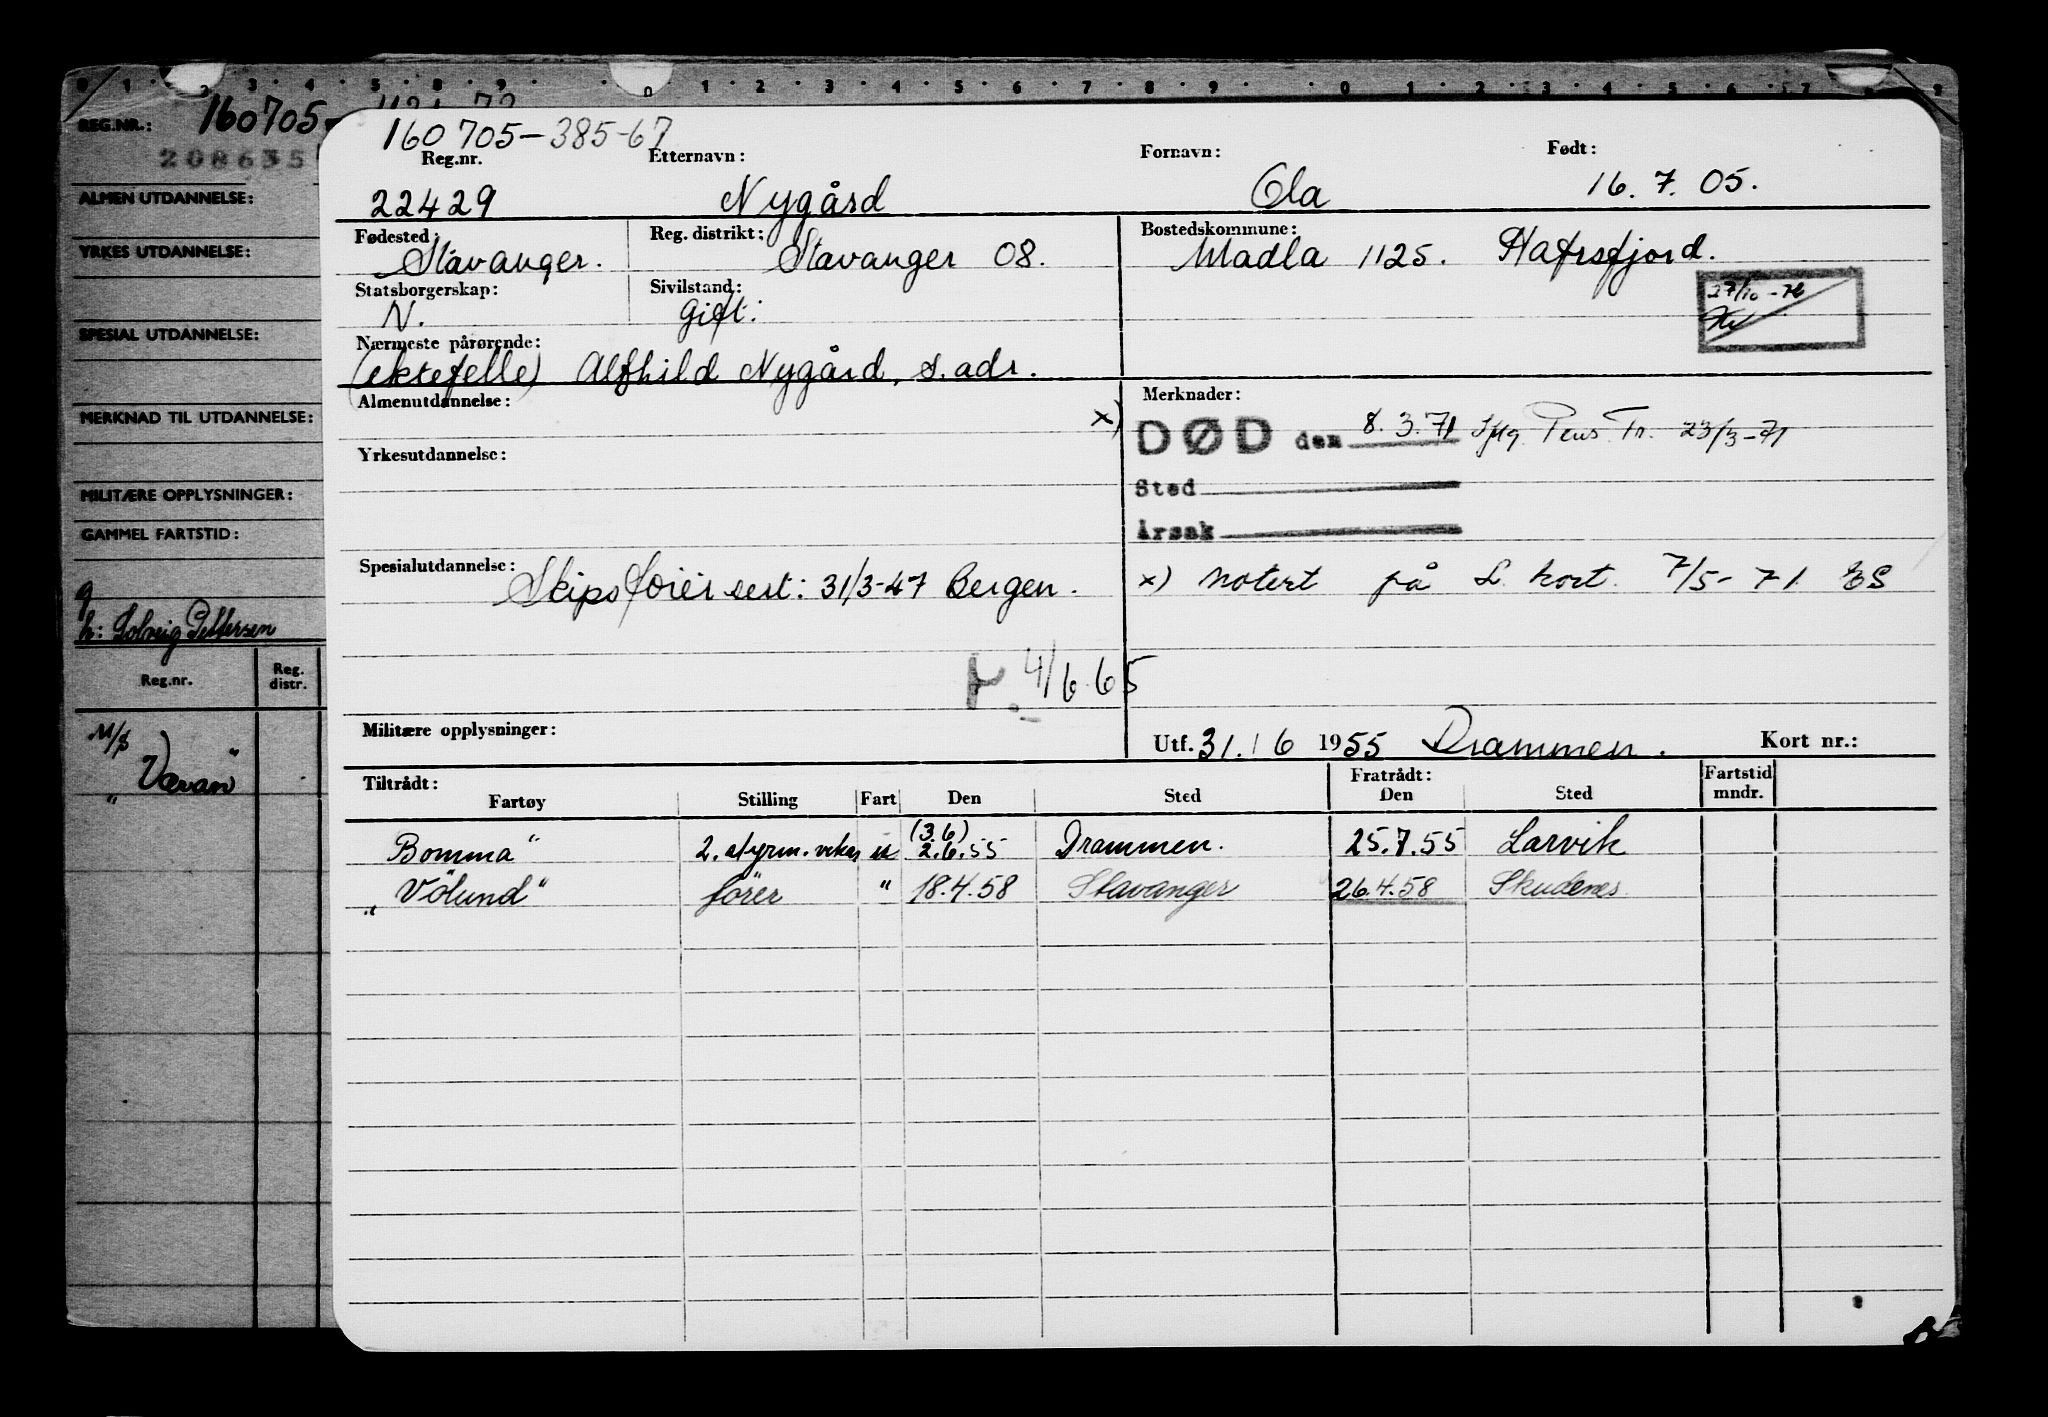 REG.NR.: 160705
208635
ALMEN UTDANNELSE:
YRKES UTDANNELSE:
SPESIAL UTDANNELSE:
MERKNAD TIL UTDANNELSE:
MILITÆRE OPPLYSNINGER:
GAMMEL FARTSTID:
h: Solveig Pettersen
Reg.nr. Reg. distr.
M/S
"Væran"
160705-385-67
Reg.nr. Etternavn: Fornavn: Født:
22429 Nygård Ola 16.7.05.
Fødested: Reg. distrikt: Bostedskommune:
Stavanger. Stavanger 08. Madla 1125. Hafrsfjord.
Statsborgerskap: Sivilstand:
N. Gift. 27/10-76
Nærmeste pårørende:
(ektefelle) Alfhild Nygård, s. adr.
Almenutdannelse: x) Merknader:
DØD den 8.3.71 Iflg. Pens. Tr. 23/3-71
Yrkesutdannelse:
Sted
Årsak
Spesialutdannelse: Skipsførersert: 31/3-47 Bergen. x) Notert på L. kort. 7/5-71 ES
4/6 65
Militære opplysninger: Utf. 31. / 6 1955 Drammen. Kort nr.:
Tiltrådt: Fratrådt: Fartstid
Fartøy Stilling Fart Den Sted Den Sted mndr.
(3.6)
Bomma" 2. styrm. vikar u 2.6.55 Drammen. 25.7.55 Larvik
"Völund" förer " 18.4.58 Stavanger 26.4.58 Skudenes